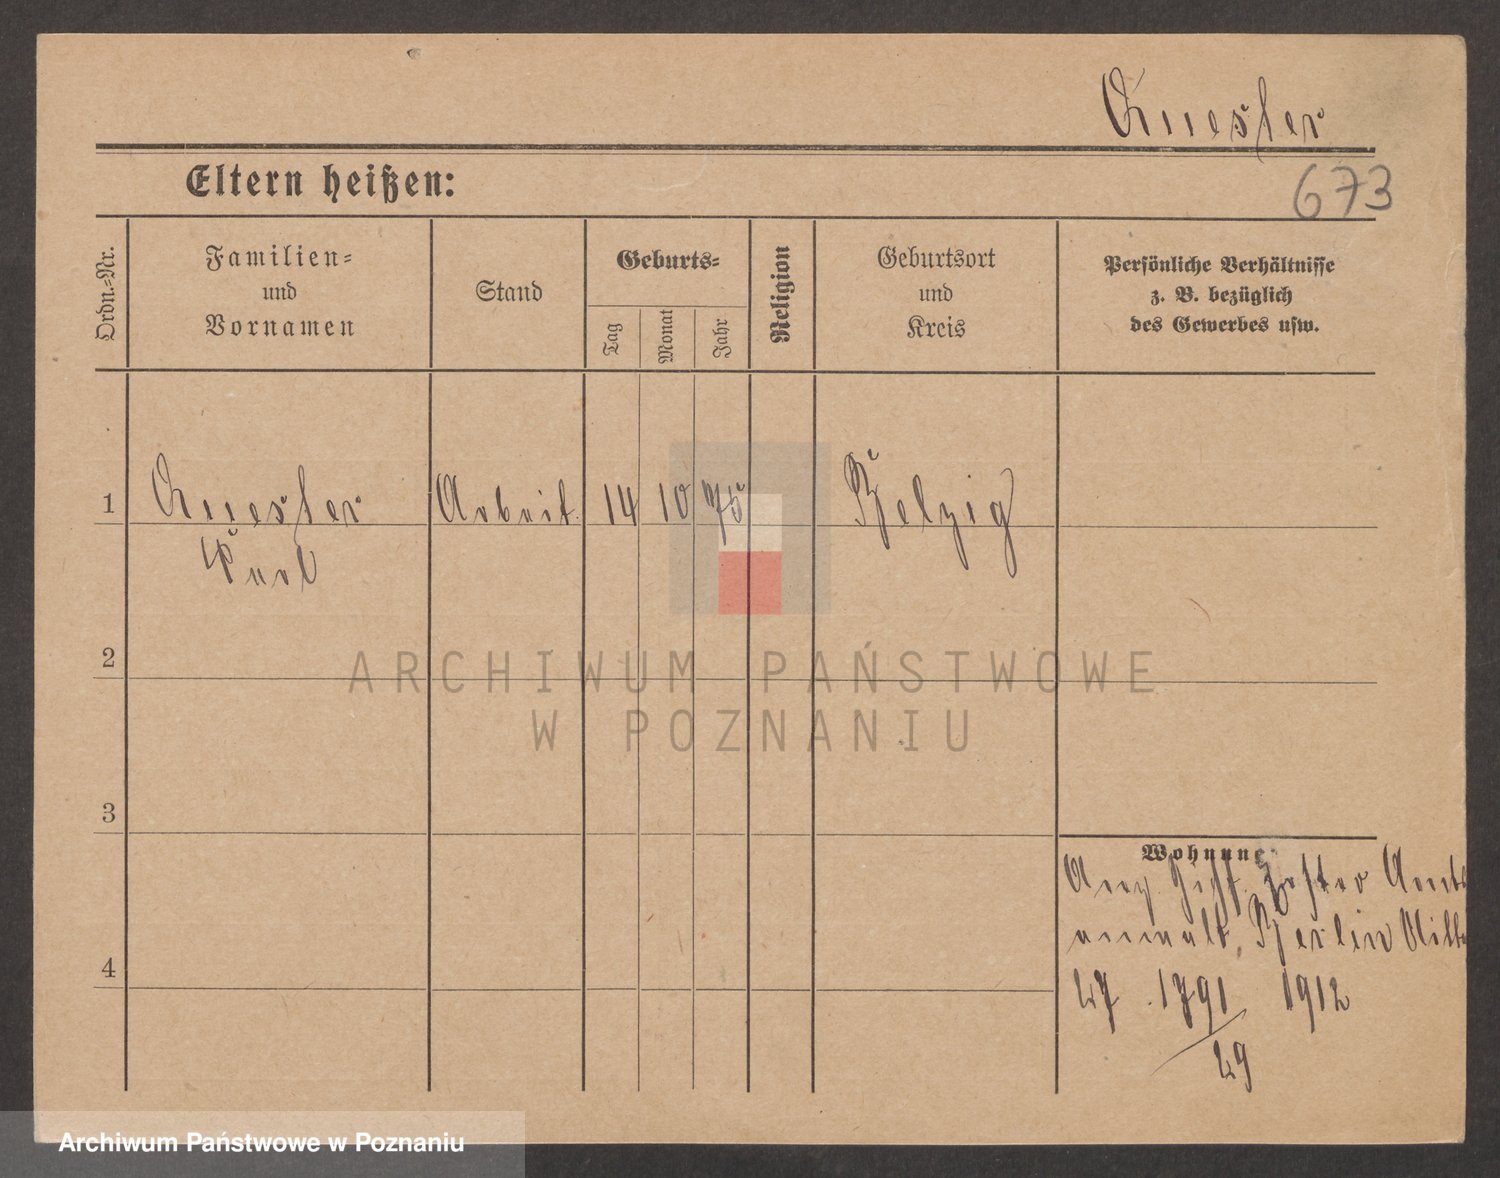 Quester
673
Eltern heißen:
Ordn.-Nr.
Familien-
und
Vornamen
Stand
Geburts-
Tag
Monat
Jahr
Religion
Geburtsort
und
Kreis
Persönliche Verhältnisse
z. B. bezüglich
des Gewerbes usw.
1
Arbeit.
14
10
75
Belzig
Karl
2
ARCHIWUM PAŃSTWOWE
W POZNANIU
3
Wohnung
Amts
anwalt, Berlin Mitte
4
1791
1912
29
Archiwum Państwowe w Poznaniu